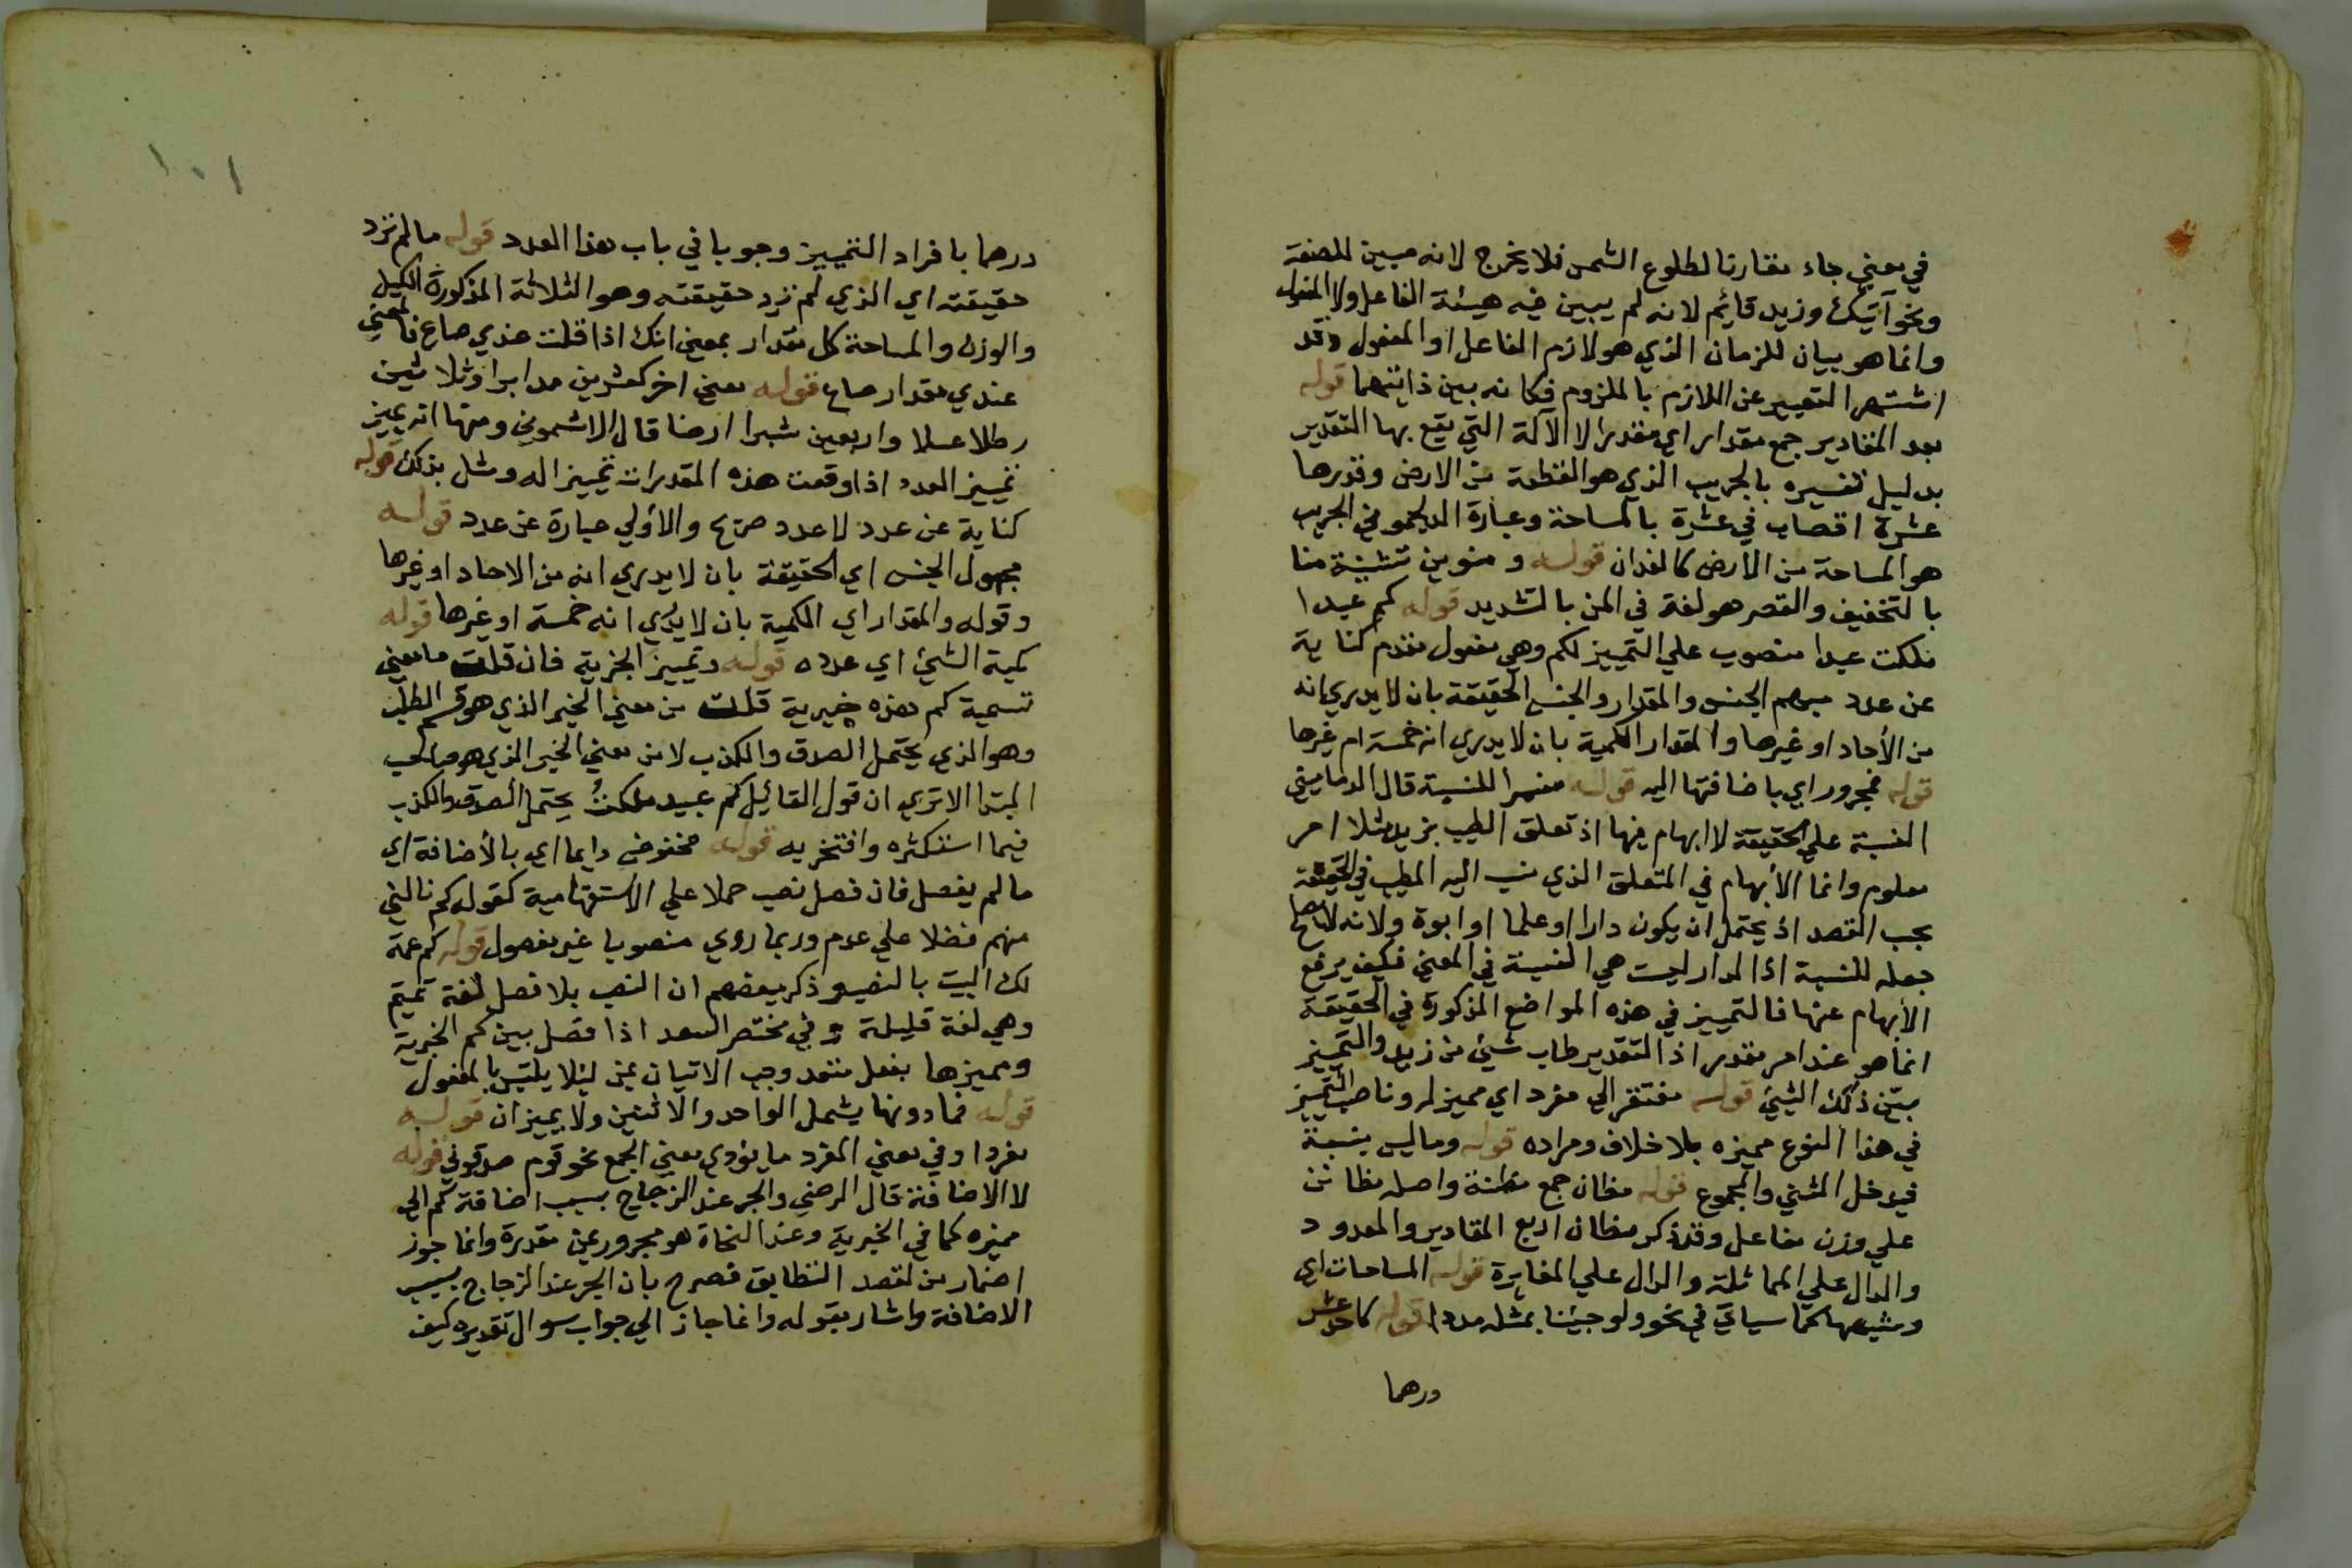 في معني جاء مقارنا لطلوع الشمس فلا يخرج لانه مبين للصفة
ونحو آتيك وزيد قايم لانه لم يبين فيه هيئة الفاعل ولا المفعول
وانما هو بيان للزمان الذي هو لازم الفاعل او المفعول وقد
اشتهر التعبير عن اللازم بالملزوم فكانه بين ذاتهما قوله
بعد المقادير جمع مقدار اي مقدر لا الآلة التي يقع بها التقدير
بدليل تفسيره بالجريب الذي هو القطعة من الارض وقدرها
عشرة اقصاب في عشرة بالمساحة وعبارة الدلجموني الجريب
هو المساحة من الارض كالفدان قوله ومنوين تثنية منا
بالتخفيف والقصر هو لغة في المن بالتشديد قوله كم عبدا
ملكت عبدا منصوب علي التمييز لكم وهي مفعول مقدم كناية
عن عدد مبهم الجنس والمقدار والجنس الحقيقة بان لا يدري انه
من الأحاد او غيرها والمقدار الكمية بان لا يدري انه خمسة ام غيرها
قوله فمجرور اي باضافتها اليه قوله مفسرا للنسبة قال الدماميني
النسبة علي الحقيقة لا ابهام فيها اذ تعلق الطيب بزيد مثلا امر
معلوم وانما الأبهام في المتعلق الذي نسب اليه الطيب في الحقيقة
بحب القصد اذ يحتمل ان يكون دارا او علما او ابوة ولانه لا يصح
جعله للنسبة اذ الدار ليست هي النسبة في المعني فكيف يرفع
الأبهام عنها فالتمييز في هذه المواضع المذكورة في الحقيقة
انما هو عند امر مقدر اذ التقدير طاب شيئ من زيد والتمييز
بيّن ذلك الشيئ قوله مفتقر الي مفرد اي مميز له وناصب التمييز
في هذا النوع مميزه بلا خلاف ومراده قوله وما ليس بنسبة
فيدخل المثني والمجموع قوله مظان جمع مظنة واصله مظانن
علي وزن مفاعل وقد ذكر مظان اربع المقادير والمعدود
والدال علي المماثلة والدال علي المغايرة قوله المساحات اي
وشبهها كما سياتي في نحو ولو جيئنا بمثله مددا قوله كاحد عشر
درهما
١٠١
درهما بافراد التمييز وجوبا في باب هذا العدد قوله ما لم ترد
حقيقته اي الذي لم ترد حقيقته وهو الثلاثة المذكورة الكيل
والوزن والمساحة كل مقدار بمعني انك اذا قلت عندي صاع فالمعني
عندي مقدار صاع قوله معني اخر كعشرين مدا برا وثلاثين
رطلا عسلا واربعين شبرا ارضا قال الاشموني ومنها انه يميز
تمييز العدد اذا وقعت هذه المقدرات تمييزا له ومثل بذلك قوله
كناية عن عدد لا عدد صريح والأولي عبارة عن عدد قوله
مجهول الجنس اي الحقيقة بان لا يدري انه من الاحاد او غيرها
وقوله والمقدار اي الكمية بان لا يدري انه خمسة او غيرها قوله
كمية الشيئ اي عدده قوله وتمييز الخبرية فان قلت ما معني
تسمية كم هذه خبرية قلت من معني الخبر الذي هو قسيم الطلب
وهو الذي يحتمل الصدق والكذب لا من معني الخبر الذي هو صاحب
المبتدا الا تري ان قول القائيل كم عبيد ملكتُ يحتمل الصدق والكذب
فيما استكثره وافتخر به قوله مخفوض دايما اي بالأضافة اي
ما لم يفصل فان فصل نصب حملا علي الاستفهامية كقوله كم نالني
منهم فضلا علي عدم وربما روي منصوبا غير مفصول قوله كم عمة
لك البيت بالنصب وذكر بعضهم ان النصب بلا فصل لغة تميم
وهي لغة قليلة وفي مختصر السعد اذا فصل بين كم الخبرية
ومميزها بفعل متعد وجب الاتيان بمن ليلا يلتبس بالمفعول
قوله فما دونها يشمل الواحد والاثنين ولا يميزان قوله
مفردا وفي معني المفرد ما يؤدي معني الجمع نحو قوم صدقوني قوله
لا الاضافة قال الرضي والجر عند الزجاج بسبب اضافة كم الي
مميزه كما في الخبرية وعند النحاة هو مجرور بمن مقدرة وانما جوز
اضمار من لقصد التطابق فصرح بان الجر عند الزجاج بسبب
الاضافة واشار بقوله وانما جاز الي جواب سوال تقديره كيف